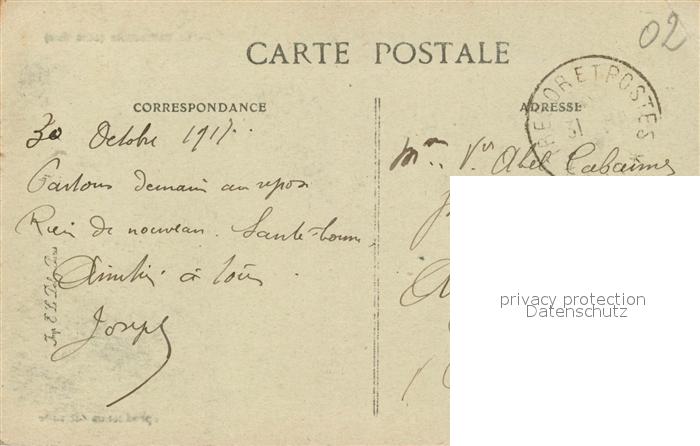 02
CARTE POSTALE
TRESOR ET POSTES
31
CORRESPONDANCE
ADRESSE
30 Octobre 1917.
Mme Vve Abel Cabaines
Partons demain au repos
Rien de nouveau. Santé bonne,
Amitiés à tous.
Joseph
privacy protection
Datenschutz